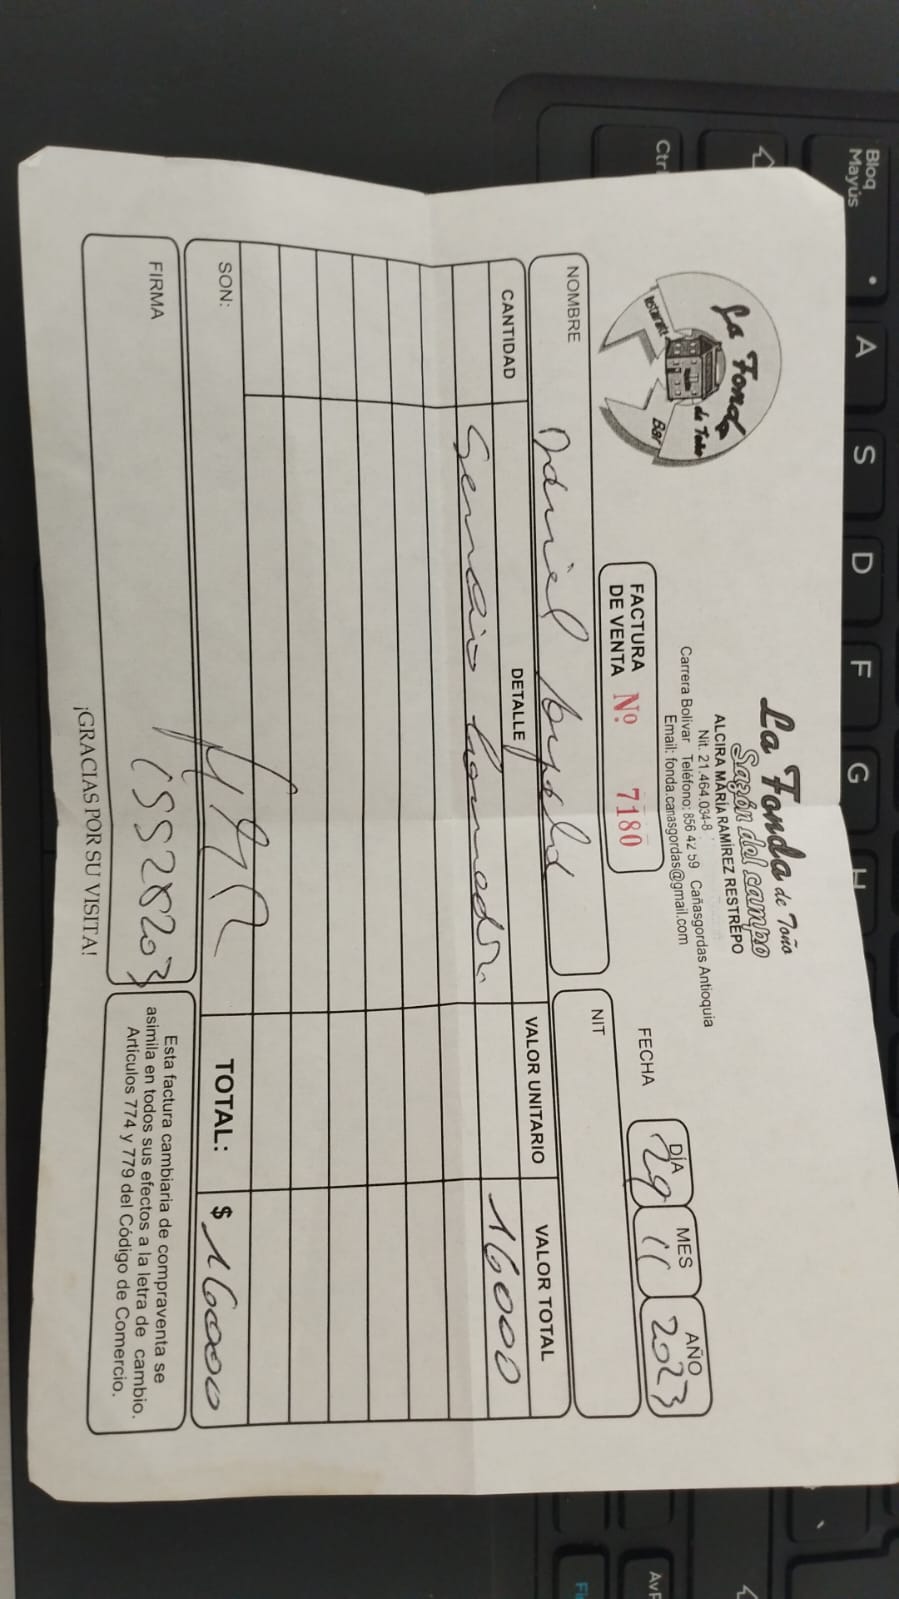 La Fonda de Toño
Sazón del campo
ALCIRA MARÍA RAMÍREZ RESTREPO
Nit. 21.464.034-8
Carrera Bolivar Teléfono: 856 42 59 Cañasgordas Antioquia
Email: fonda.canasgordas@gmail.com
La Fonda
de Toño
Restaurante
Bar
FACTURA
DE VENTA Nº. 7180
FECHA
DÍA MES AÑO
29 11 2023
NOMBRE Daniel
NIT
CANTIDAD DETALLE VALOR UNITARIO VALOR TOTAL
Servicio 16000
SON:
TOTAL: $ 16000
FIRMA
¡GRACIAS POR SU VISITA!
Esta factura cambiaria de compraventa se
asimila en todos sus efectos a la letra de cambio.
Artículos 774 y 779 del Código de Comercio.
Bloq
Mayús
A
S
D
F
G
H
Ctr